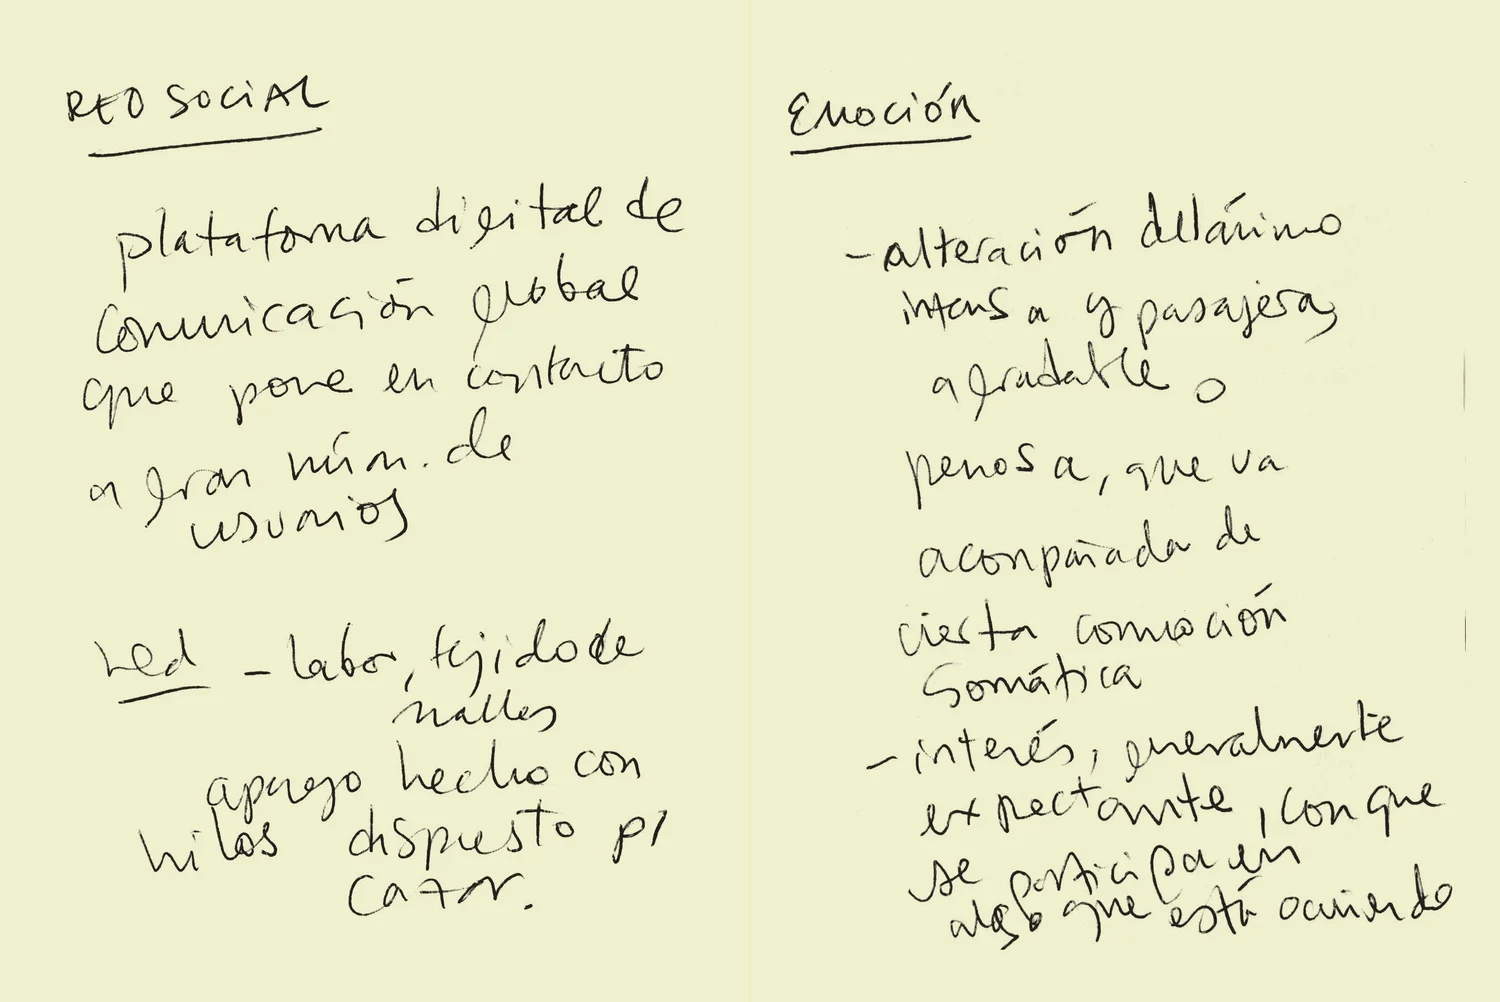 RED SOCIAL
plataforma digital de
comunicación global
que pone en contacto
a gran núm. de
usuarios
red - labor, tejido de
mallas
aparejo hecho con
hilos dispuesto p/
cazar.
Emoción
- alteración del ánimo
intensa y pasajera,
agradable o
penosa, que va
acompañada de
cierta conmoción
somática
- interés, generalmente
expectante, con que
se participa en
algo que está ocurriendo